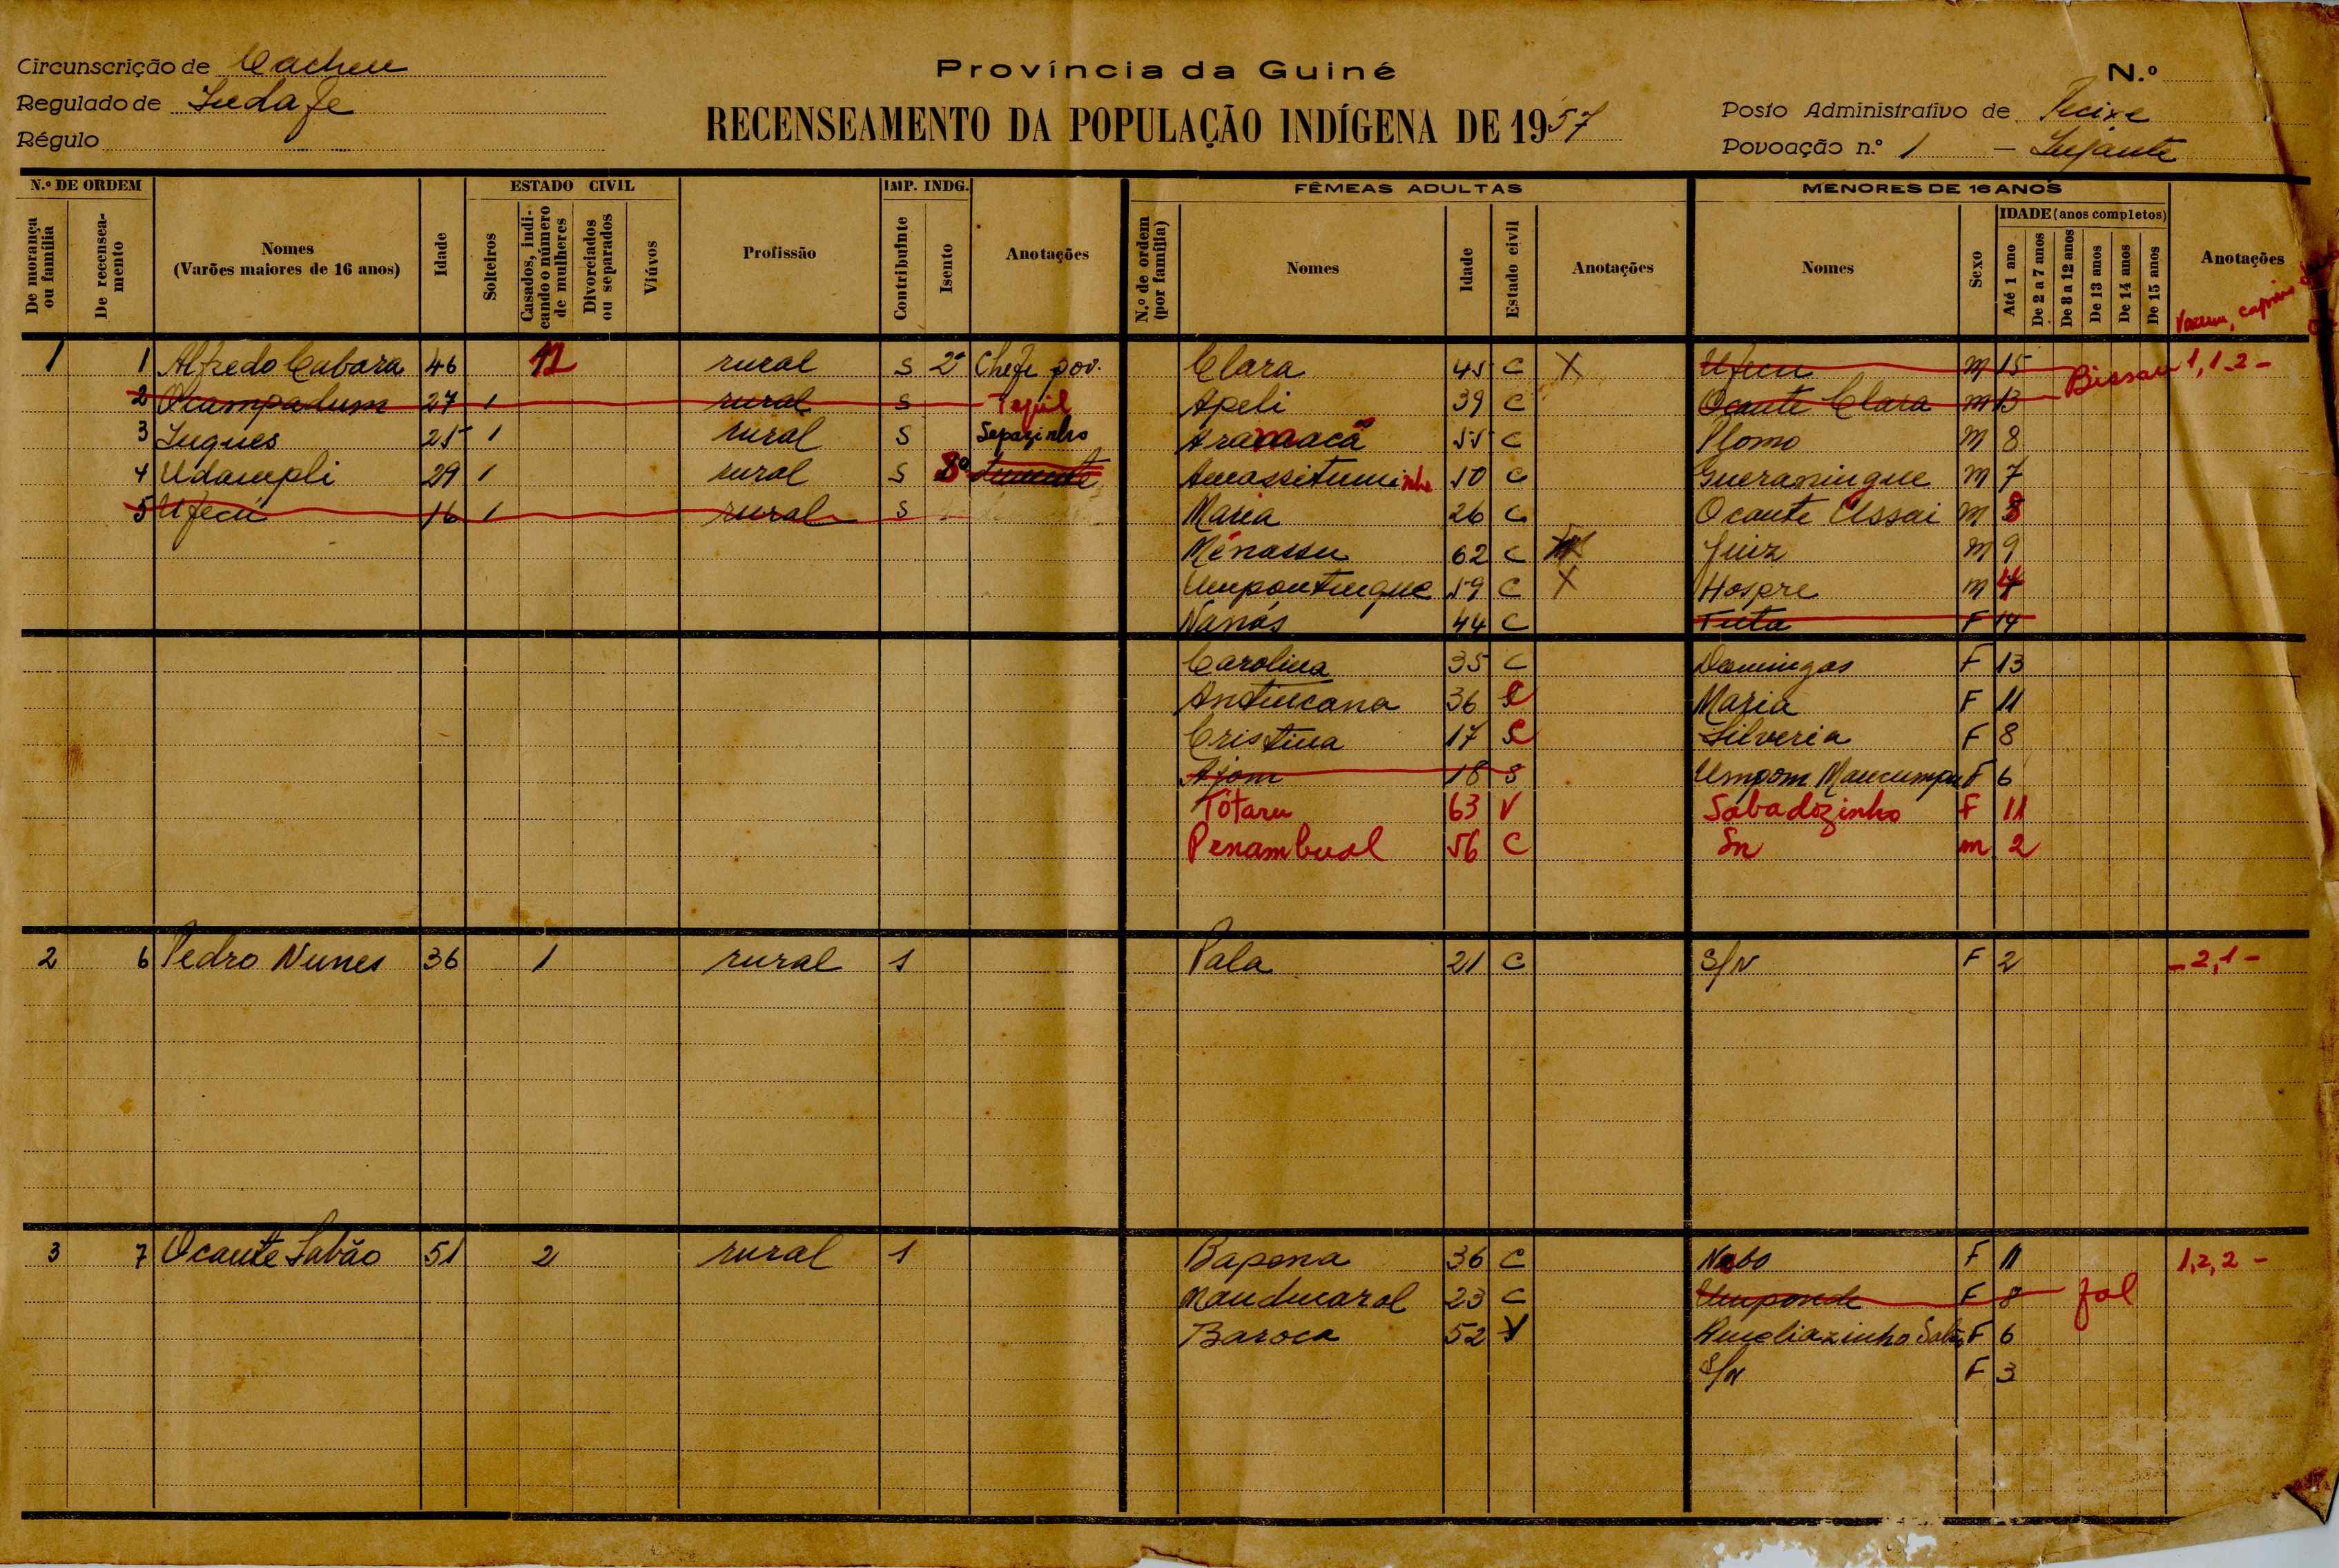 Província da Guiné
N.º
Circunscrição de Cacheu
Regulado de
Régulo
RECENSEAMENTO DA POPULAÇÃO INDÍGENA DE 1957
Posto Administrativo de
Povoação n.º 1 —
N.º DE ORDEM
De morança ou família
De recenseamento
Nomes
(Varões maiores de 16 anos)
Idade
ESTADO CIVIL
Solteiros
Casados, indicando o número de mulheres
Divorciados ou separados
Viúvos
Profissão
IMP. INDG.
Contribuinte
Isento
Anotações
FÊMEAS ADULTAS
N.º de ordem (por família)
Nomes
Idade
Estado civil
Anotações
MENORES DE 16 ANOS
Nomes
Sexo
IDADE (anos completos)
Até 1 ano
De 2 a 7 anos
De 8 a 12 anos
De 13 anos
De 14 anos
De 15 anos
Anotações
1 1 Alfredo Cabara 46 12 rural S 2º Chefe pov. Clara 45 C X Ufecu M 15 1,1-2-
2 Ocampadum 27 1 rural S Apeli 39 C Ocante Clara M 13 Bissau
3 25 1 rural S Sepazinho 55 C Plomo M 8
4 Udampli 29 1 rural S 50 C M 7
5 Ufecu 16 1 rural S Maria 26 C Ocante Ussai M 8
Menassu 62 C Juiz M 9
59 C X Hospre M 4
Nanás 44 C Tuta F 14
Carolina 35 C Domingas F 13
36 C Maria F 11
Cristina 17 C Silveria F 8
Ajom 18 S F 6
Tótaru 63 V Sabadozinho F 11
Penambual 56 C Sn M 2
2 6 Pedro Nunes 36 1 rural S Pala 21 C S/N F 2 -2,1-
3 7 Ocante Sabão 51 2 rural S Bapena 36 C Nabo F 11 1,2,2-
23 C Umponde F 8 fal
Baroca 52 V F 6
S/N F 3